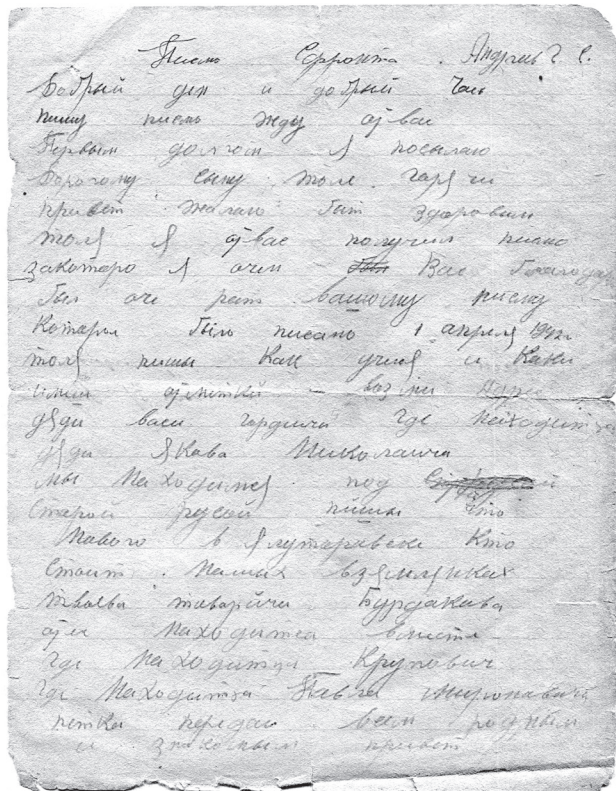 Писмо Сфронта. Андреев Г. С.
Добрый ден и добрый Час
пишу писмо жду отвас
Первым долгом я посылаю
Дорогому сыну толе горячи
привет желаю быт здоровым
толя я отвас получил писмо
закоторо я очен Вас благодар
был оче рат вашому писму
Которое было писано 1 апреля 1942г
толя пишы Как учися и Каки
отметки возми
дяди васи где находитца
дяди Якова Николаича
мы Находимся под
Старой русой пишы что
Нового в Ялутаравске Кто
Стоит Наших взямлянках
твоева товарища Бурдакава
отец Находитса вместе
где находитца Крупович
где Находитца Павел миронавич
петка передай всем родным
и знакомым привет